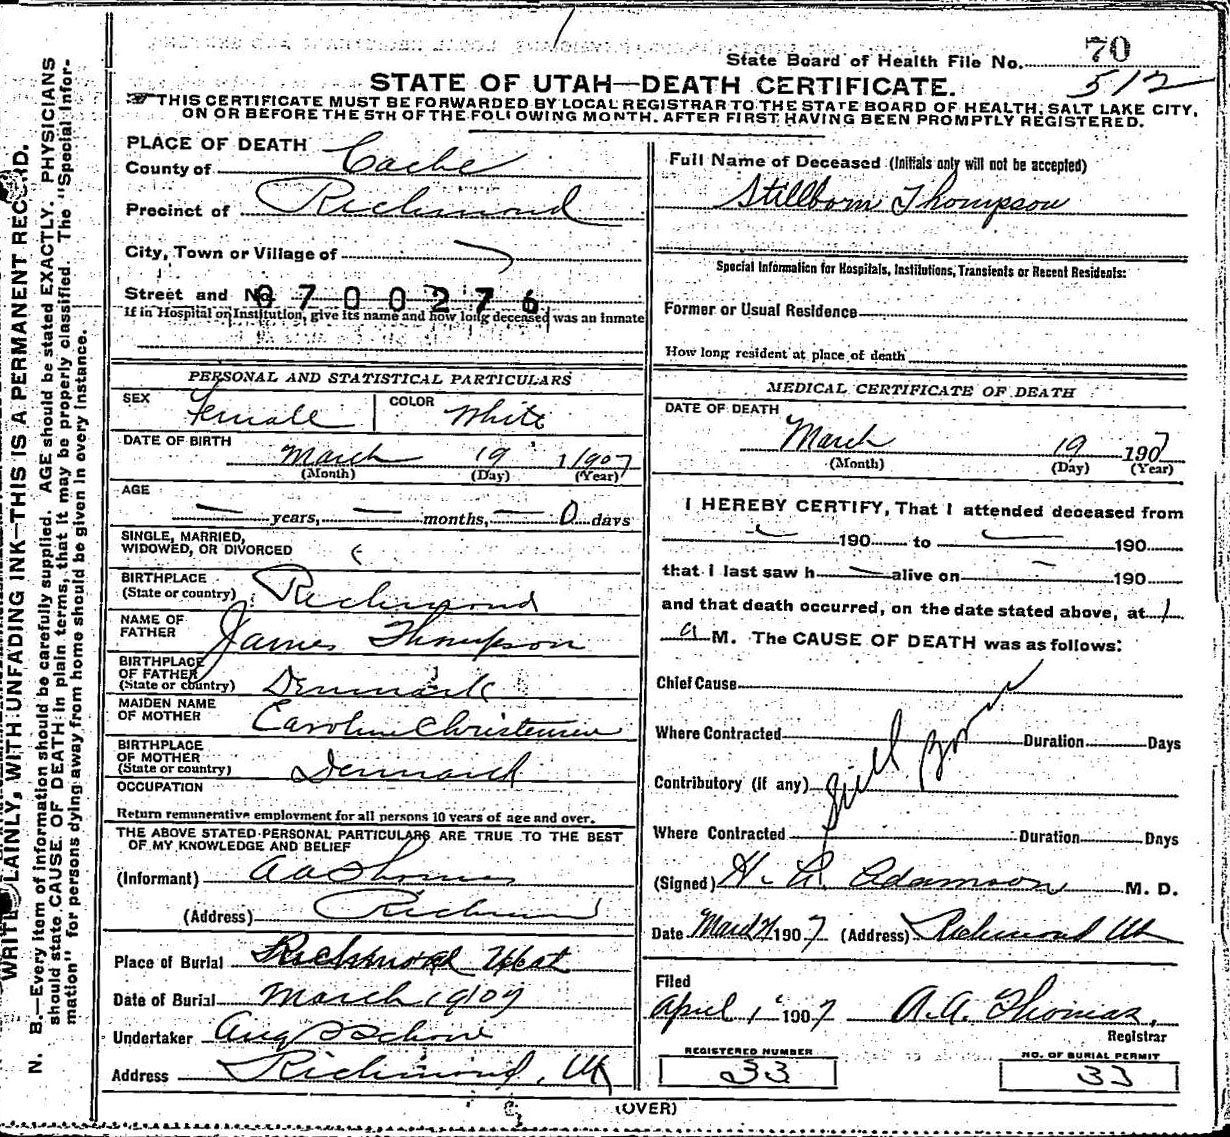 State Board of Health File No. 70
512
STATE OF UTAH—DEATH CERTIFICATE.
THIS CERTIFICATE MUST BE FORWARDED BY LOCAL REGISTRAR TO THE STATE BOARD OF HEALTH, SALT LAKE CITY,
ON OR BEFORE THE 5TH OF THE FOLLOWING MONTH. AFTER FIRST HAVING BEEN PROMPTLY REGISTERED.
WRITE PLAINLY, WITH UNFADING INK—THIS IS A PERMANENT RECORD.
N. B.—Every item of information should be carefully supplied. AGE should be stated EXACTLY. PHYSICIANS
should state CAUSE OF DEATH in plain terms, that it may be properly classified. The "Special Infor-
mation" for persons dying away from home should be given in every instance.
PLACE OF DEATH
County of Cache
Precinct of Richmond
City, Town or Village of
Street and No. 0700276
If in Hospital or Institution, give its name and how long deceased was an inmate
PERSONAL AND STATISTICAL PARTICULARS
SEX Female COLOR White
DATE OF BIRTH
March 19 1907
(Month) (Day) (Year)
AGE
— years, — months, — 0 days
SINGLE, MARRIED,
WIDOWED, OR DIVORCED
BIRTHPLACE
(State or country) Richmond
NAME OF
FATHER James Thompson
BIRTHPLACE
OF FATHER
(State or country) Denmark
MAIDEN NAME
OF MOTHER Caroline Christensen
BIRTHPLACE
OF MOTHER
(State or country) Denmark
OCCUPATION
Return remunerative employment for all persons 10 years of age and over.
THE ABOVE STATED PERSONAL PARTICULARS ARE TRUE TO THE BEST
OF MY KNOWLEDGE AND BELIEF
(Informant) A A Thomas
(Address) Richmond
Place of Burial Richmond Utah
Date of Burial March 19 07
Undertaker Aug
Address Richmond, Ut
Full Name of Deceased (Initials only will not be accepted)
Stillborn Thompson
Special Information for Hospitals, Institutions, Transients or Recent Residents:
Former or Usual Residence
How long resident at place of death
MEDICAL CERTIFICATE OF DEATH
DATE OF DEATH
March 19 1907
(Month) (Day) (Year)
I HEREBY CERTIFY, That I attended deceased from
— 190 to — 190
that I last saw h — alive on — 190
and that death occurred, on the date stated above, at 1
a M. The CAUSE OF DEATH was as follows:
Chief Cause
Where Contracted Duration Days
Contributory (if any) Still Born
Where Contracted Duration Days
(Signed) Adamson M. D.
Date March 1907 (Address) Richmond Ut
Filed
April 1 1907 A. A. Thomas,
Registrar
REGISTERED NUMBER
33
NO. OF BURIAL PERMIT
33
(OVER)